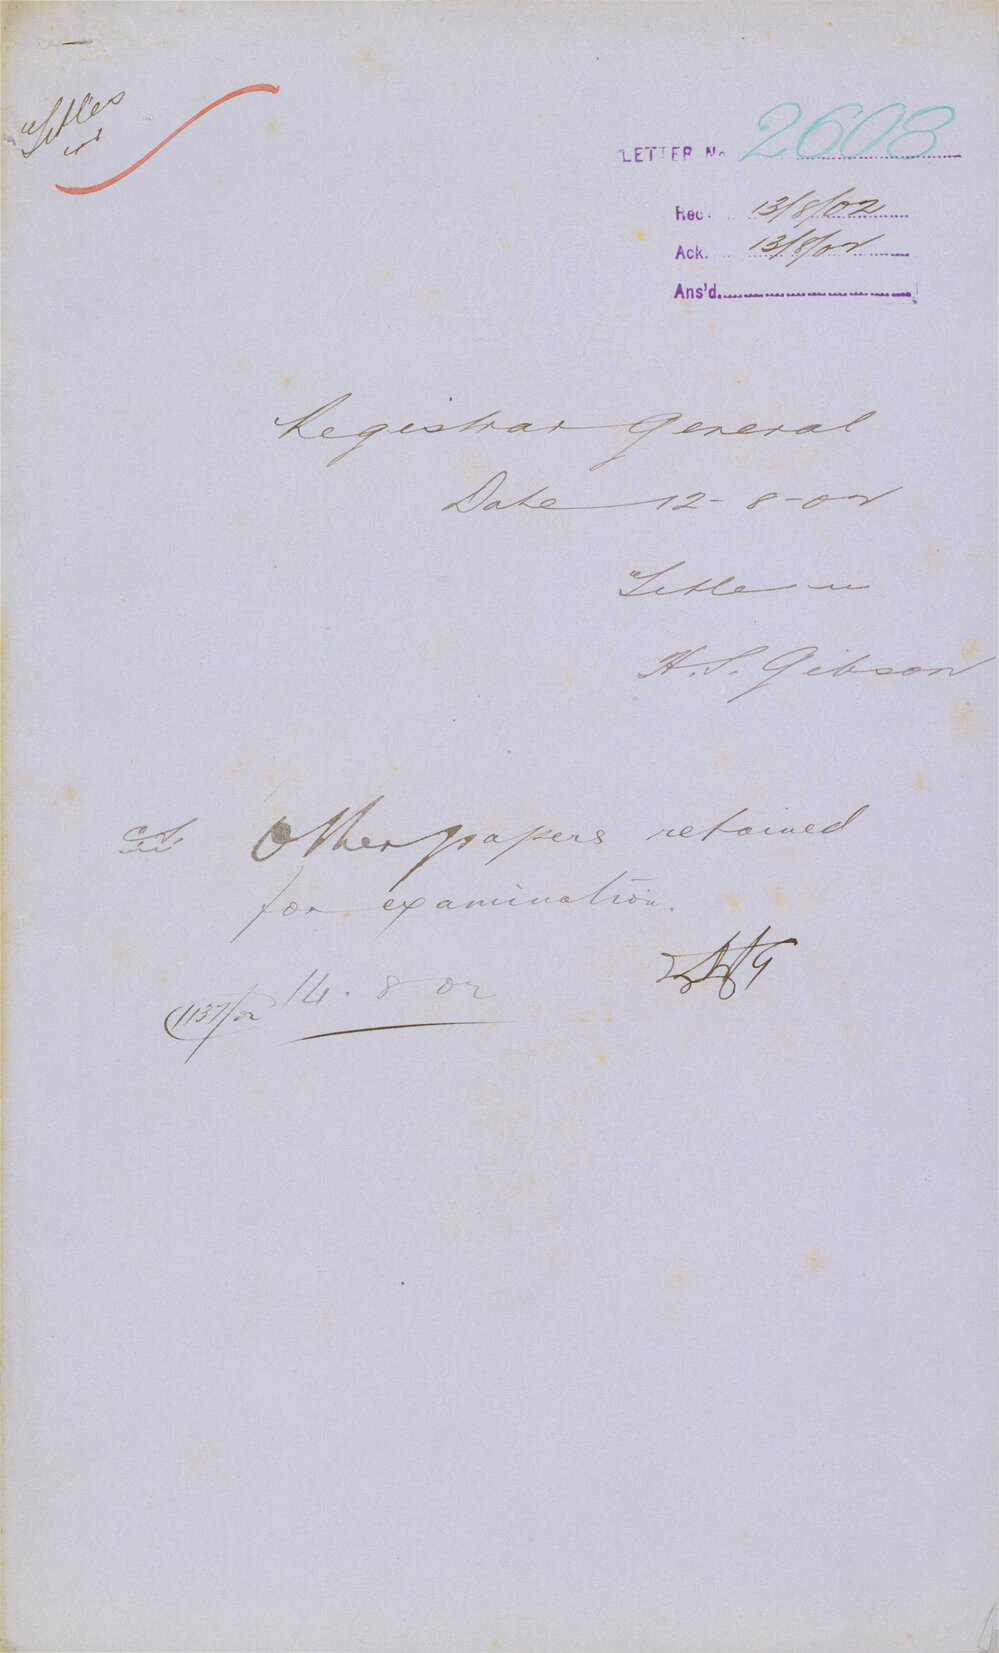 Titles
LETTER No 2608
Rec. 13/8/02
Ack. 13/8/02
Ans'd.
Registrar General
Date 12-8-02
Title
H. S. Gibson
Other papers retained
for examination.
14. 8 02
1137/02